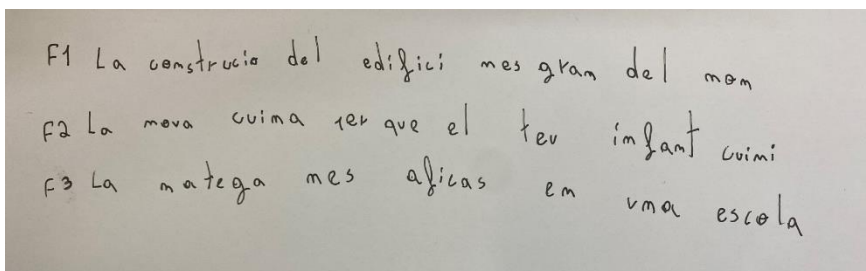 F1 La construcio del edifici mes gran del mon
F2 La nova cuina per que el teu infant cuini
F3 La natega mes aficas en una escola